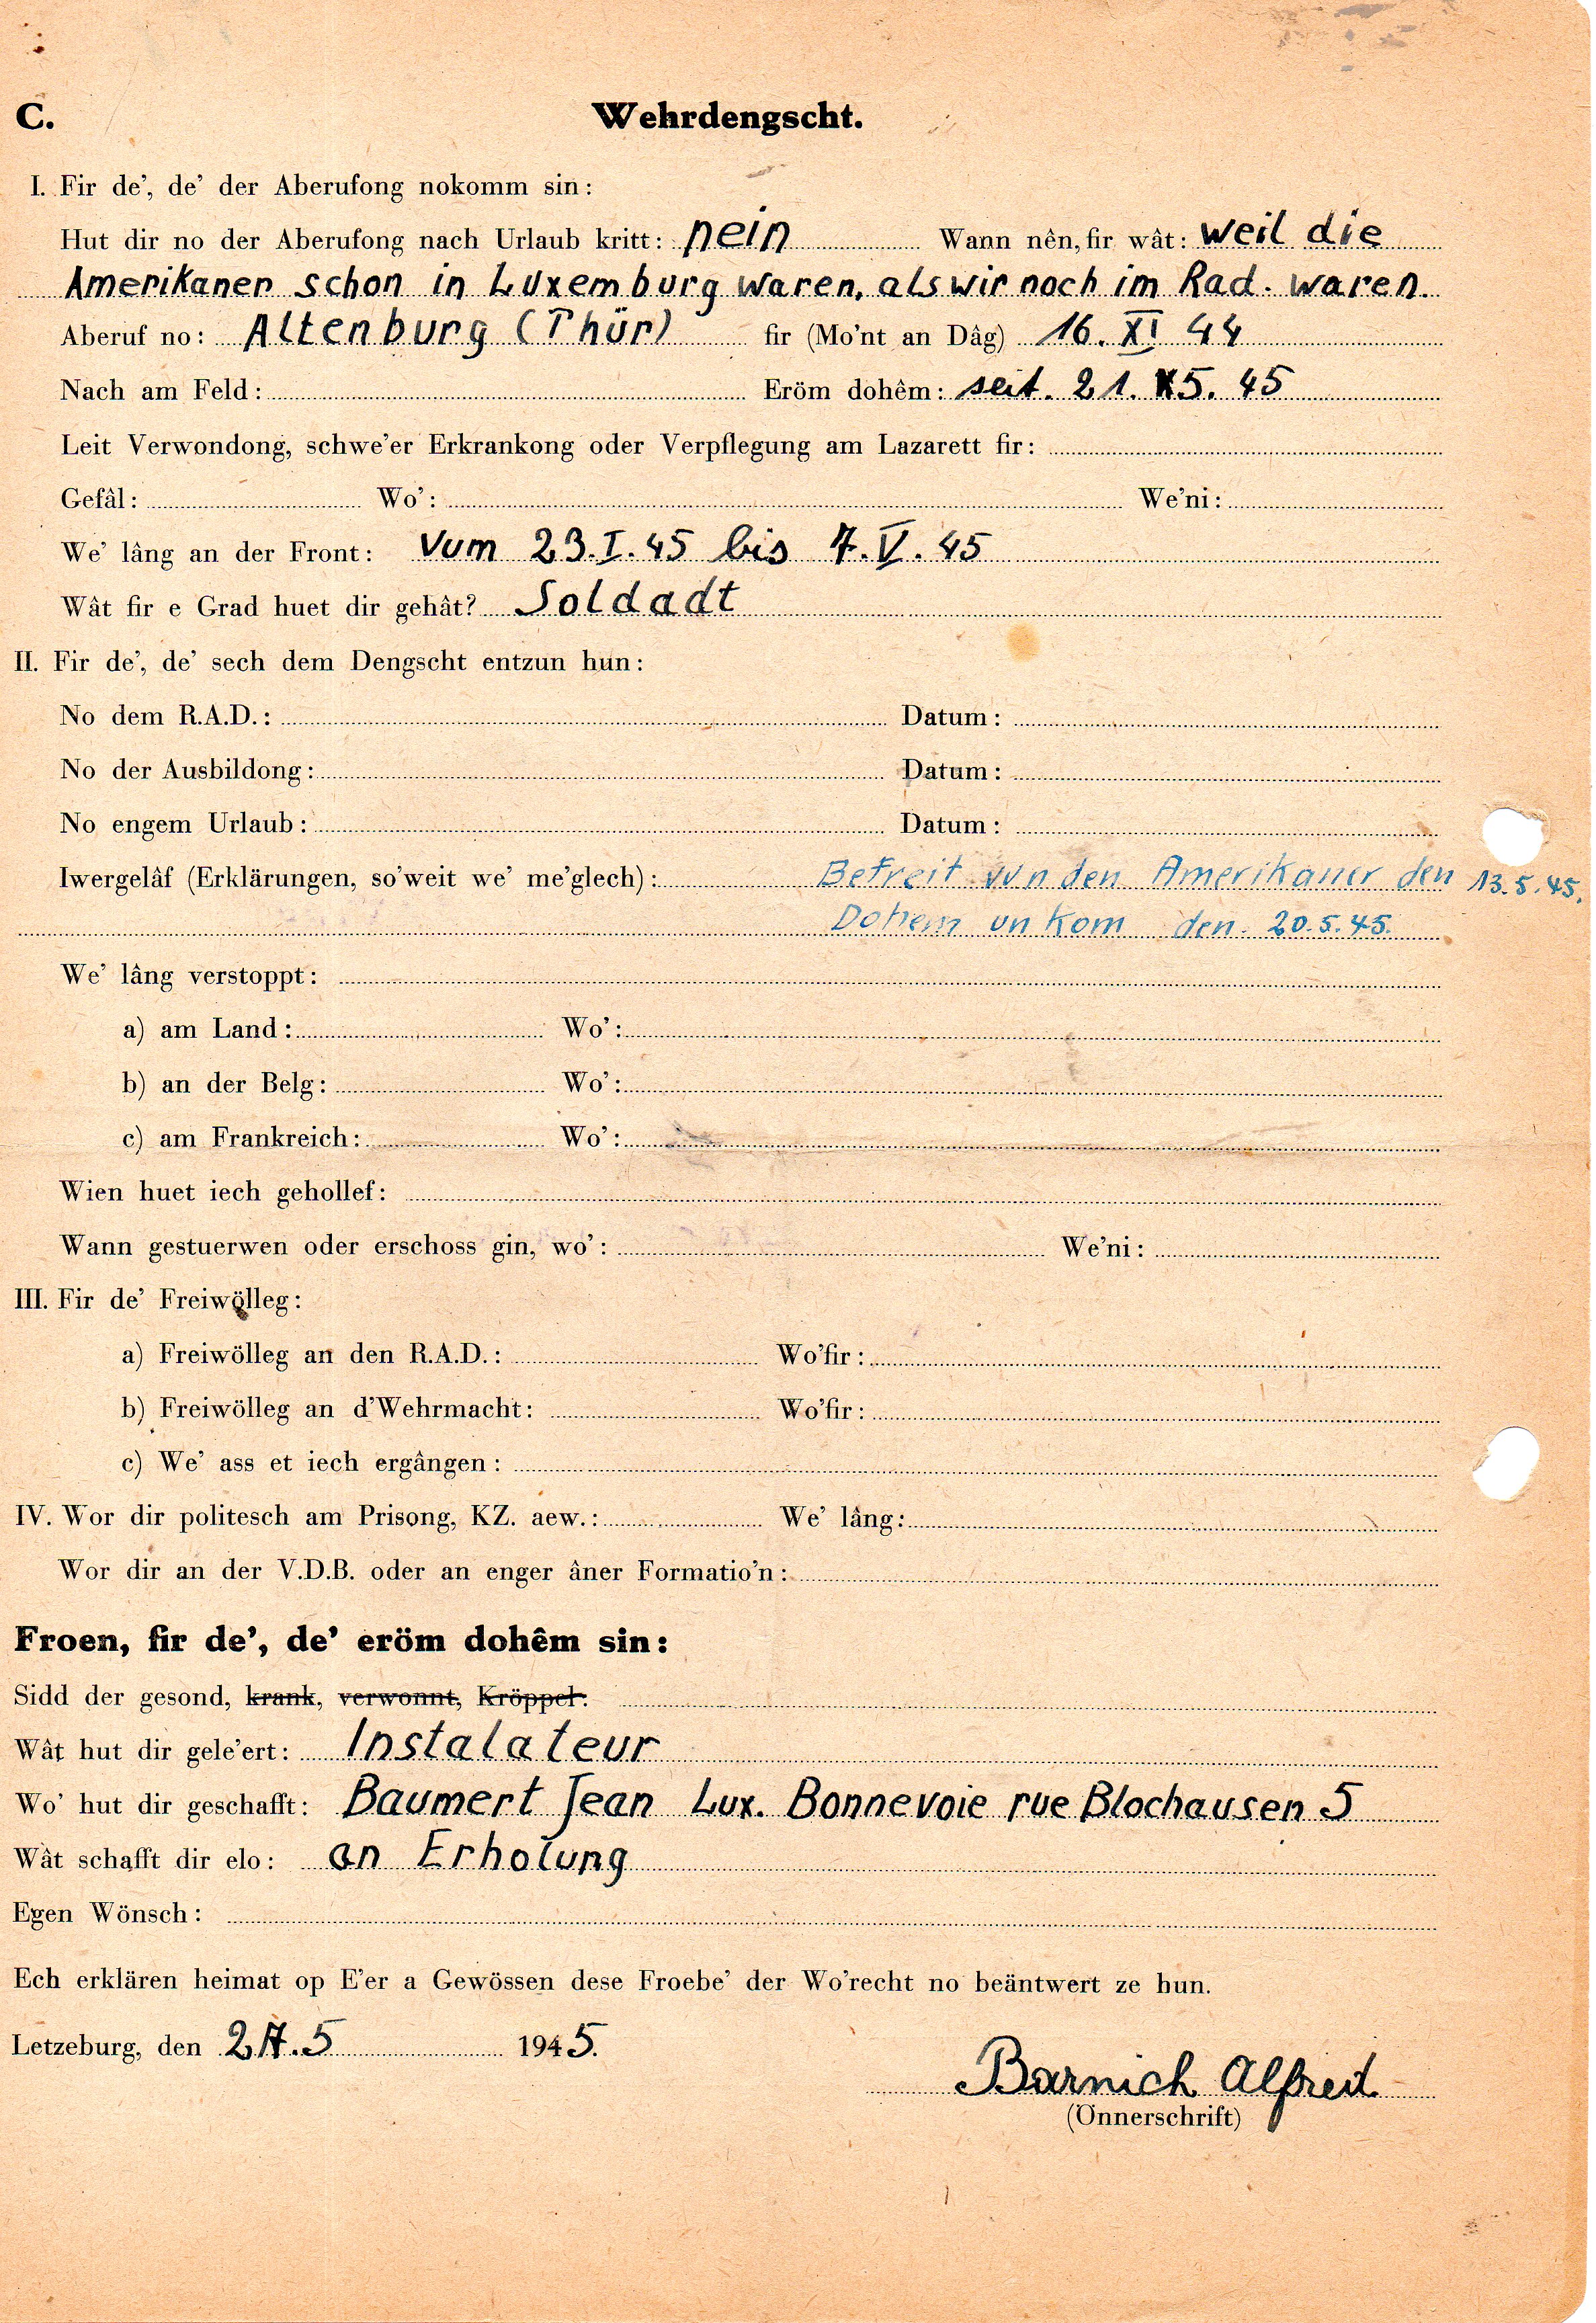 C. Wehrdengscht.
I. Fir de', de' der Aberufong nokomm sin:
Hut dir no der Aberufong nach Urlaub kritt: nein Wann nên, fir wât: weil die
Amerikaner schon in Luxemburg waren, als wir noch im Rad. waren.
Aberuf no: Altenburg (Thür) fir (Mo'nt an Dâg) 16. XI 44
Nach am Feld: Eröm dohêm: seit. 21. 5. 45
Leit Verwondong, schwe'er Erkrankong oder Verpflegung am Lazarett fir:
Gefâl: Wo': We'ni:
We' lâng an der Front: Vum 23. I. 45 bis 7. V. 45
Wât fir e Grad huet dir gehât? Soldadt
II. Fir de', de' sech dem Dengscht entzun hun:
No dem R.A.D.: Datum:
No der Ausbildong: Datum:
No engem Urlaub: Datum:
Iwergelâf (Erklärungen, so'weit we' me'glech): Befreit vun den Amerikaner den 13.5.45.
Dohem un kom den. 20.5.45.
We' lâng verstoppt:
a) am Land: Wo':
b) an der Belg: Wo':
c) am Frankreich: Wo':
Wien huet iech gehollef:
Wann gestuerwen oder erschoss gin, wo': We'ni:
III. Fir de' Freiwölleg:
a) Freiwölleg an den R.A.D.: Wo'fir:
b) Freiwölleg an d'Wehrmacht: Wo'fir:
c) We' ass et iech ergângen:
IV. Wor dir politesch am Prisong, KZ. aew.: We' lâng:
Wor dir an der V.D.B. oder an enger âner Formatio'n:
Froen, fir de', de' eröm dohêm sin:
Sidd der gesond, krank, verwonnt, Kröppel:
Wât hut dir gele'ert: Instalateur
Wo' hut dir geschafft: Baumert Jean Lux. Bonnevoie rue Blochausen 5
Wât schafft dir elo: an Erholung
Egen Wönsch:
Ech erklären heimat op E'er a Gewössen dese Froebe' der Wo'recht no beäntwert ze hun.
Letzeburg, den 27.5 1945.
Barnich Alfred
(Onnerschrift)